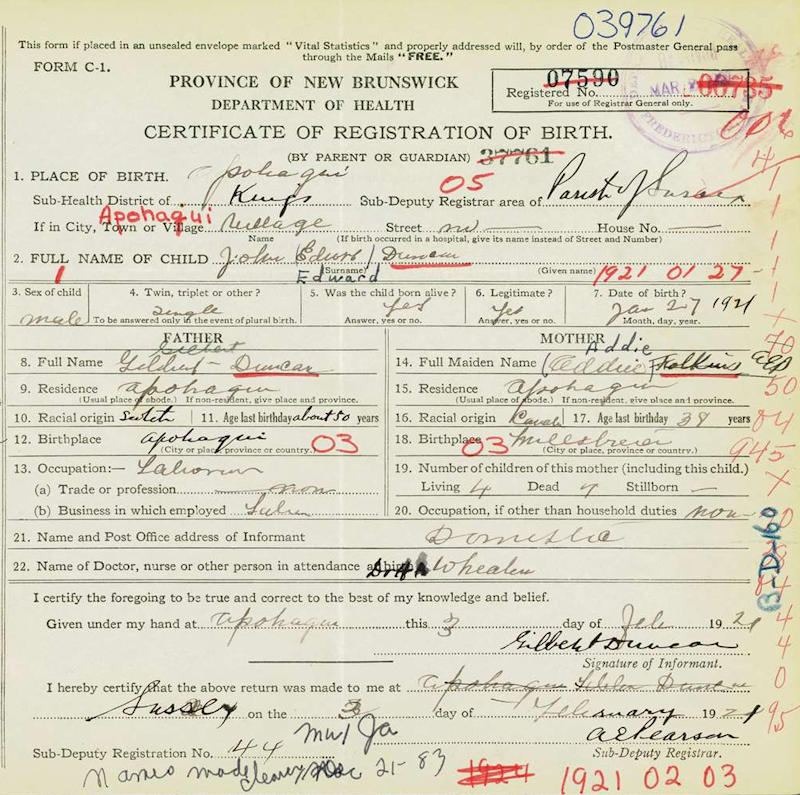 039761
This form if placed in an unsealed envelope marked "Vital Statistics" and properly addressed will, by order of the Postmaster General pass
through the Mails "FREE."
FORM C-1.
PROVINCE OF NEW BRUNSWICK
DEPARTMENT OF HEALTH
Registered No. 07590 00735
For use of Registrar General only.
MAR
FREDERICTON
CERTIFICATE OF REGISTRATION OF BIRTH.
(BY PARENT OR GUARDIAN) 37761
006
1. PLACE OF BIRTH. Apohaqui
05
Sub-Health District of Kings Sub-Deputy Registrar area of Parish of Sussex
Apohaqui
If in City, Town or Village Village Street no House No.
Name (If birth occurred in a hospital, give its name instead of Street and Number)
2. FULL NAME OF CHILD John Duncan
(Surname) (Given name)
Edward
1 1921 01 27
3. Sex of child 4. Twin, triplet or other? 5. Was the child born alive? 6. Legitimate? 7. Date of birth?
male Single Yes Yes Jan 27 1921
To be answered only in the event of plural birth. Answer, yes or no. Answer, yes or no. Month, day, year.
FATHER MOTHER
Gilbert Addie
8. Full Name Duncan 14. Full Maiden Name (Addie) Folkins
9. Residence Apohaqui 15. Residence Apohaqui
(Usual place of abode.) If non-resident, give place and province. (Usual place of abode. If non-resident, give place and province.
10. Racial origin 11. Age last birthday about 50 years 16. Racial origin 17. Age last birthday 38 years
12. Birthplace Apohaqui 03 18. Birthplace 03
(City or place, province or country.) (City or place, province or country.)
13. Occupation:— 19. Number of children of this mother (including this child.)
(a) Trade or profession non Living 4 Dead Stillborn –
(b) Business in which employed 20. Occupation, if other than household duties non
21. Name and Post Office address of Informant Domestic
22. Name of Doctor, nurse or other person in attendance at birth
I certify the foregoing to be true and correct to the best of my knowledge and belief.
Given under my hand at Apohaqui this 3 day of Feb 1921
Gilbert Duncan
Signature of Informant.
I hereby certify that the above return was made to me at Apohaqui
Sussex on the 3 day of February 1921
A E Pearson
Sub-Deputy Registration No. 44 Sub-Deputy Registrar.
Names made Dec 21-83
1924 1921 02 03
70
50
84
945
B-D-160
95